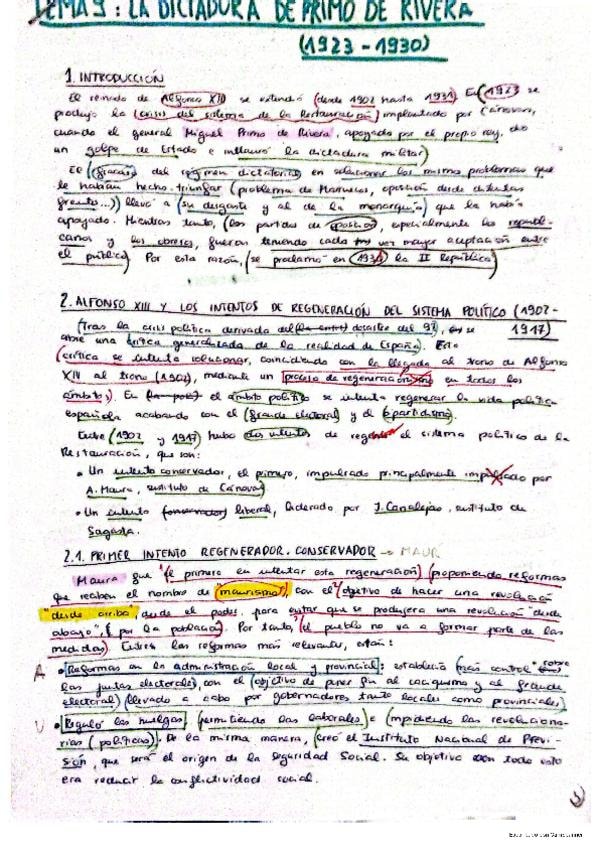 TEMA 9: LA DICTADURA DE PRIMO DE RIVERA
(1923 - 1930)
1. INTRODUCCIÓN
El reinado de Alfonso XIII se extendió (desde 1902 hasta 1931). En 1923 se
produjo la (crisis del sistema de la Restauración) implantado por Cánovas,
cuando el general Miguel Primo de Rivera, apoyado por el propio rey, dio
un golpe de Estado e instauró la dictadura militar)
El (fracaso) del régimen dictatorial en solucionar los mismo problemas que
le habían hecho triunfar (problema de Marruecos, oposición desde distintos
frentes...) llevó a (su desgaste y al de la monarquía) que la había
apoyado. Mientras tanto, (los partidos de oposición, especialmente los republi-
canos y los obreros, fueron teniendo cada vez mayor aceptación entre
el público) Por esta razón, (se proclamó en 1931 la II República)
2. ALFONSO XIII Y LOS INTENTOS DE REGENERACIÓN DEL SISTEMA POLÍTICO (1902-
1917)
(Tras la crisis política derivada del desastre del 98, se
abre una crítica generalizada de la realidad de España). Esta
(crítica se intenta solucionar, coincidiendo con la llegada al trono de Alfonso
XIII al trono (1902), mediante un proceso de regeneración en todos los
ámbitos). En el ámbito político se intenta regenerar la vida política
española acabando con el (fraude electoral) y el (partidismo).
Entre (1902 y 1917) hubo dos intentos de regenerar el sistema político de la
Restauración, que son:
• Un intento conservador, el primero, impulsado principalmente impulsado por
A. Maura, sustituto de Cánovas
• Un intento conservador liberal, liderado por J. Canalejas, sustituto de
Sagasta.
2.1. PRIMER INTENTO REGENERADOR. CONSERVADOR → MAUR
Maura fue (el primero en intentar esta regeneración) (proponiendo reformas
que reciben el nombre de "maurismo"), con el (objetivo de hacer una revolución
"desde arriba", desde el poder, para evitar que se produjera una revolución "desde
abajo", (por la población). Por tanto, (el pueblo no va a formar parte de las
medidas). Entre las reformas más relevante, están:
A • Reformas en la administración local y provincial: establecía (más control sobre
las juntas electorales), con el (objetivo de poner fin al caciquismo y al fraude
electoral) (llevado a cabo por gobernadores tanto locales como provinciales)
• Reguló las huelgas (permitiendo las laborales) e (impidiendo las revoluciona-
rias (políticas). De la misma manera, (creó el Instituto Nacional de Previ-
sión, que será el origen de la Seguridad Social. Su objetivo con todo esto
era reducir la conflictividad social.